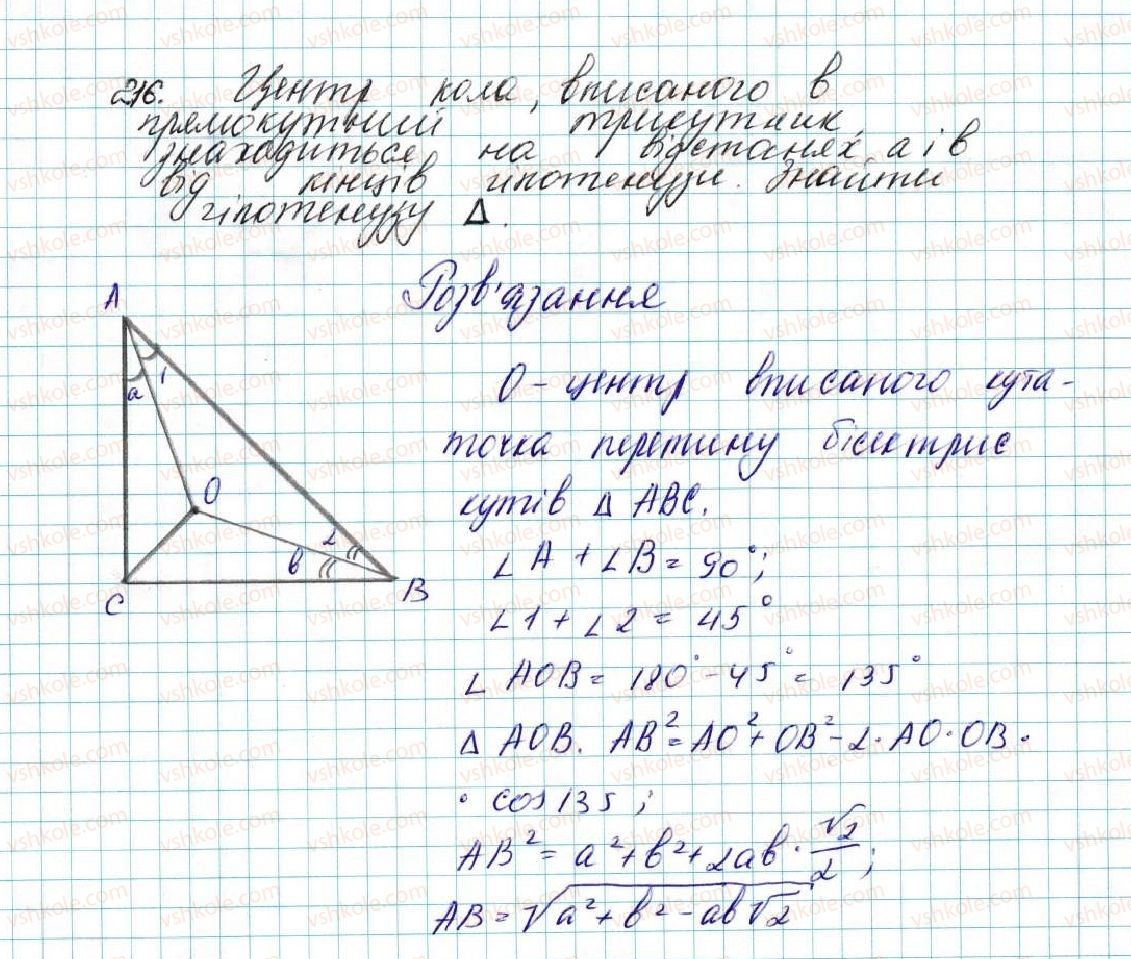 216. Центр кола, вписаного в
прямокутний трикутник,
знаходиться на відстанях а і в
від кінців гіпотенузи. Знайти
гіпотенузу Δ.
Розв'язання
A
а
1
O
2
в
C
B
О - центр вписаного кута -
точка перетину бісектрис
кутів Δ ABC.
∠A + ∠B = 90°;
∠1 + ∠2 = 45°
∠AOB = 180° - 45° = 135°
Δ AOB. AB² = AO² + OB² - 2 · AO · OB ·
· cos 135;
AB² = a² + b² + 2ab · √2/2;
AB = √(a² + b² - ab√2)
vshkole.com